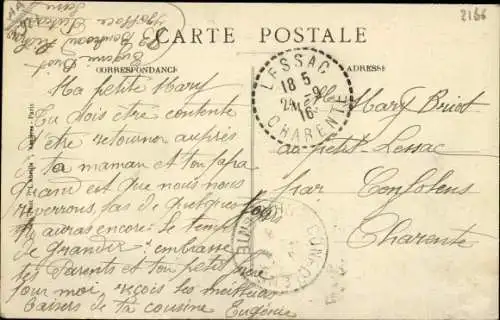 2166
CARTE POSTALE
CORRESPONDANCE
ADRESSE
LESSAC
18 5
24 -9
16
CHARENTE
Ma petite Mary
Tu dois être contente
d'être retourner auprès
de ta maman et ton papa
quand est que nous nous
reverrons, pas de quelque
tu auras encore le temp
de grandir, embrasse
tes Parents et ton petit frère
pour moi, reçois les meilleurs
baisers de ta cousine Eugénie
Mlle Mary Briot
au petit Lessac
par Confolens
Charente